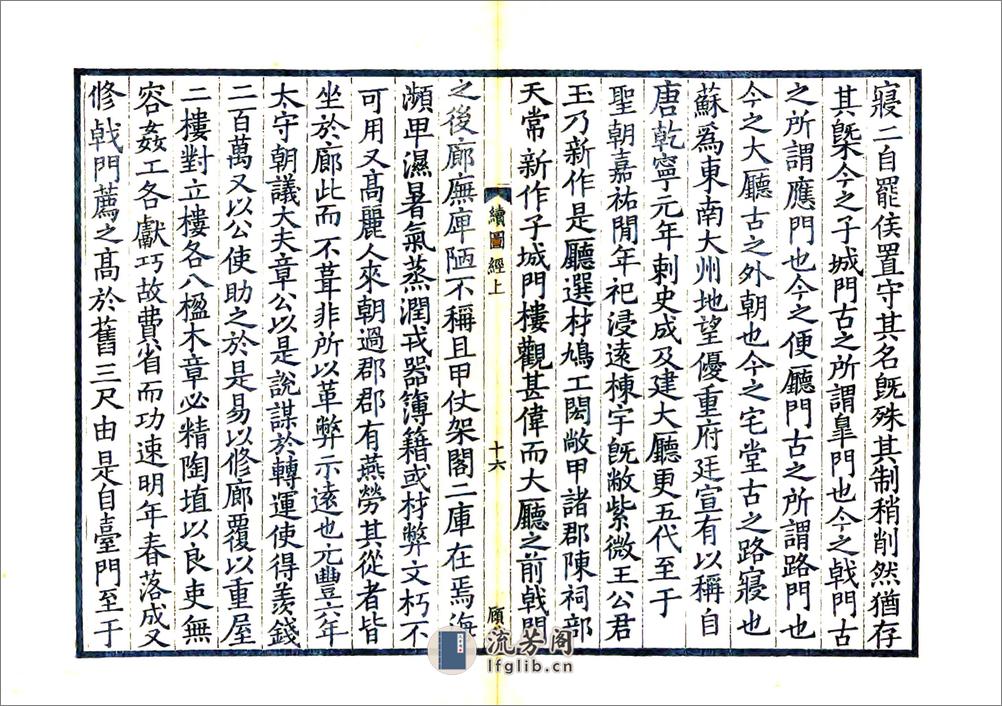 寢二自罷侯置守其名旣殊其制稍削然猶存
其槩今之子城門古之所謂臯門也今之戟門古
之所謂應門也今之便廳門古之所謂路門也
今之大廳古之外朝也今之宅堂古之路寢也
蘇爲東南大州地望優重府廷宣有以稱自
唐乾寧元年刺史成及建大廳更五代至于
聖朝嘉祐閒年祀浸遠棟宇旣敝紫微王公君
玉乃新作是廳選材鳩工閎敞甲諸郡陳祠部
天常新作子城門樓觀甚偉而大廳之前戟門
續圖經上
十六
之後廊廡庳陋不稱且甲仗架閣二庫在焉海
瀕卑濕暑氣蒸潤戎器簿籍或材弊文朽不
可用又髙麗人來朝過郡郡有燕勞其從者皆
坐於廊此而不葺非所以革弊示遠也元豐六年
太守朝議大夫章公以是說謀於轉運使得羨錢
二百萬又以公使助之於是易以修廊覆以重屋
二樓對立樓各八楹木章必精陶埴以良吏無
容姦工各獻巧故費省而功速明年春落成又
修戟門薦之髙於舊三尺由是自臺門至于
流芳阁
lfglib.cn